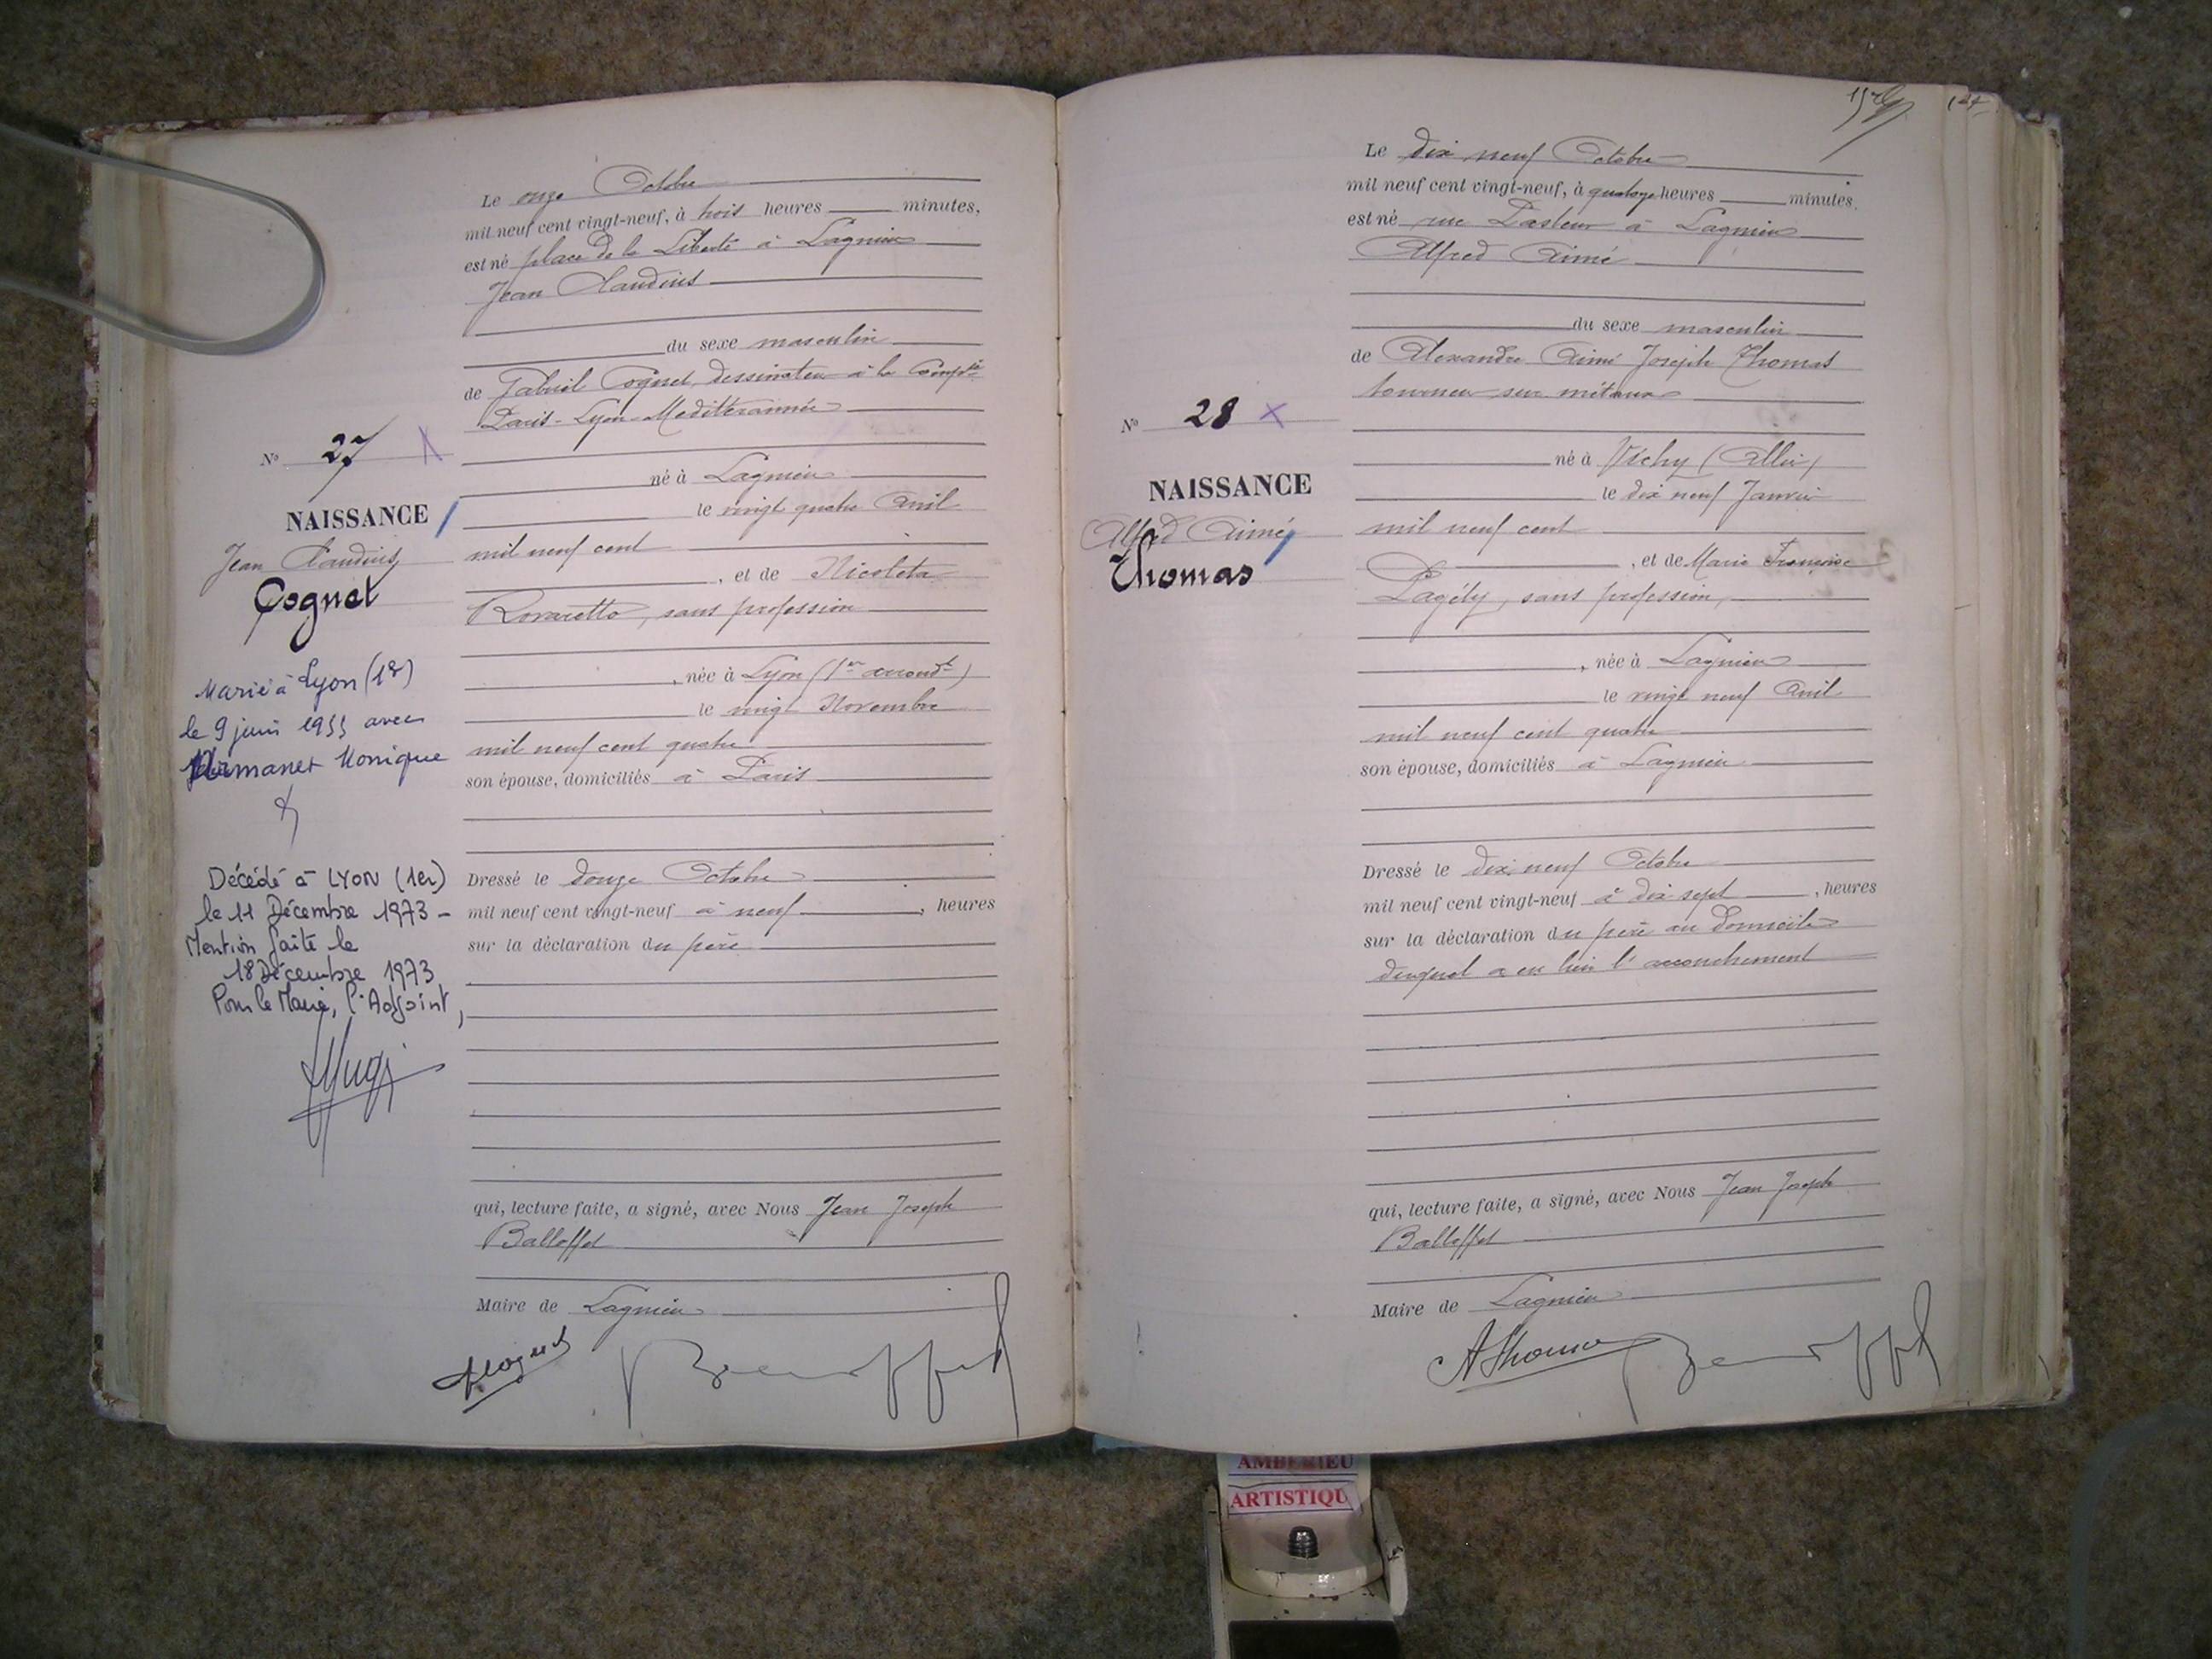 Le onze Octobre
mil neuf cent vingt-neuf, à trois heures minutes,
est né place de la Liberté à Lagnieu
Jean Claudius
du sexe masculin
de Gabriel Cognet, dessinateur à la Comp.ie
Paris-Lyon-Mediterrannée
né à Lagnieu
le vingt quatre Avril
mil neuf cent
, et de Nicoleta
Rovaretto, sans profession
, née à Lyon (1er arrondt)
le vingt Novembre
mil neuf cent quatre
son épouse, domiciliés à Paris
Dressé le douze Octobre
mil neuf cent vingt-neuf à neuf , heures
sur la déclaration du père
qui, lecture faite, a signé, avec Nous Jean Joseph
Balloffet
Maire de Lagnieu
No 27
NAISSANCE
Jean Claudius
Cognet
Marié à Lyon (1er)
le 9 juin 1955 avec
Monique
Décédé à LYON (1er)
le 11 Décembre 1973 -
Mention faite le
18 Décembre 1973
Pour le Maire, l'Adjoint,
Le dix neuf Octobre
mil neuf cent vingt-neuf, à quatorze heures minutes,
est né rue Pasteur à Lagnieu
Alfred Aimé
du sexe masculin
de Alexandre Aimé Joseph Thomas
tourneur sur métaux
né à Vichy (Allier)
le dix neuf Janvier
mil neuf cent
, et de Marie Françoise
Pagély, sans profession,
, née à Lagnieu
le vingt neuf Avril
mil neuf cent quatre
son épouse, domiciliés à Lagnieu
Dressé le dix neuf Octobre
mil neuf cent vingt-neuf à dix sept , heures
sur la déclaration du père au domicile
duquel a eu lieu l'accouchement
qui, lecture faite, a signé, avec Nous Jean Joseph
Balloffet
Maire de Lagnieu
AThomas
No 28
NAISSANCE
Alfred Aimé
Thomas
AMBERIEU
ARTISTIQU